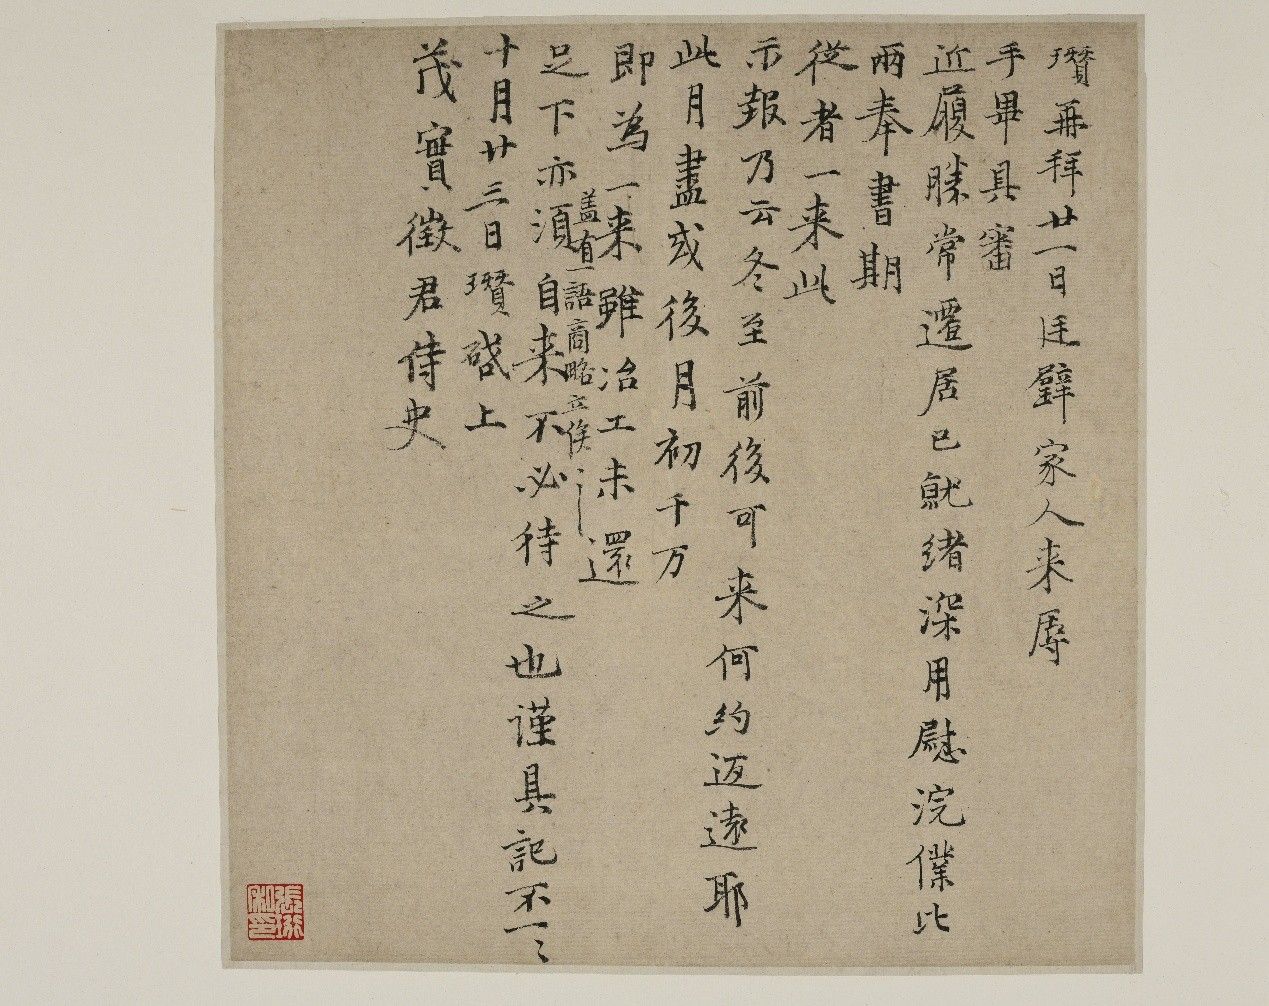 瓚再拜廿一日廷璧家人来辱
手畢具審
近履勝常遷居已就緒深用慰浣僕比
兩奉書期
從者一来此
示報乃云冬至前後可来何約迓遠耶
此月盡或後月初千万
即為一来雖冶工未還
蓋有一語商略立俟
足下亦須自来不必待之也謹具記不一〻
十月廿三日瓚啓上
茂實徵君侍史